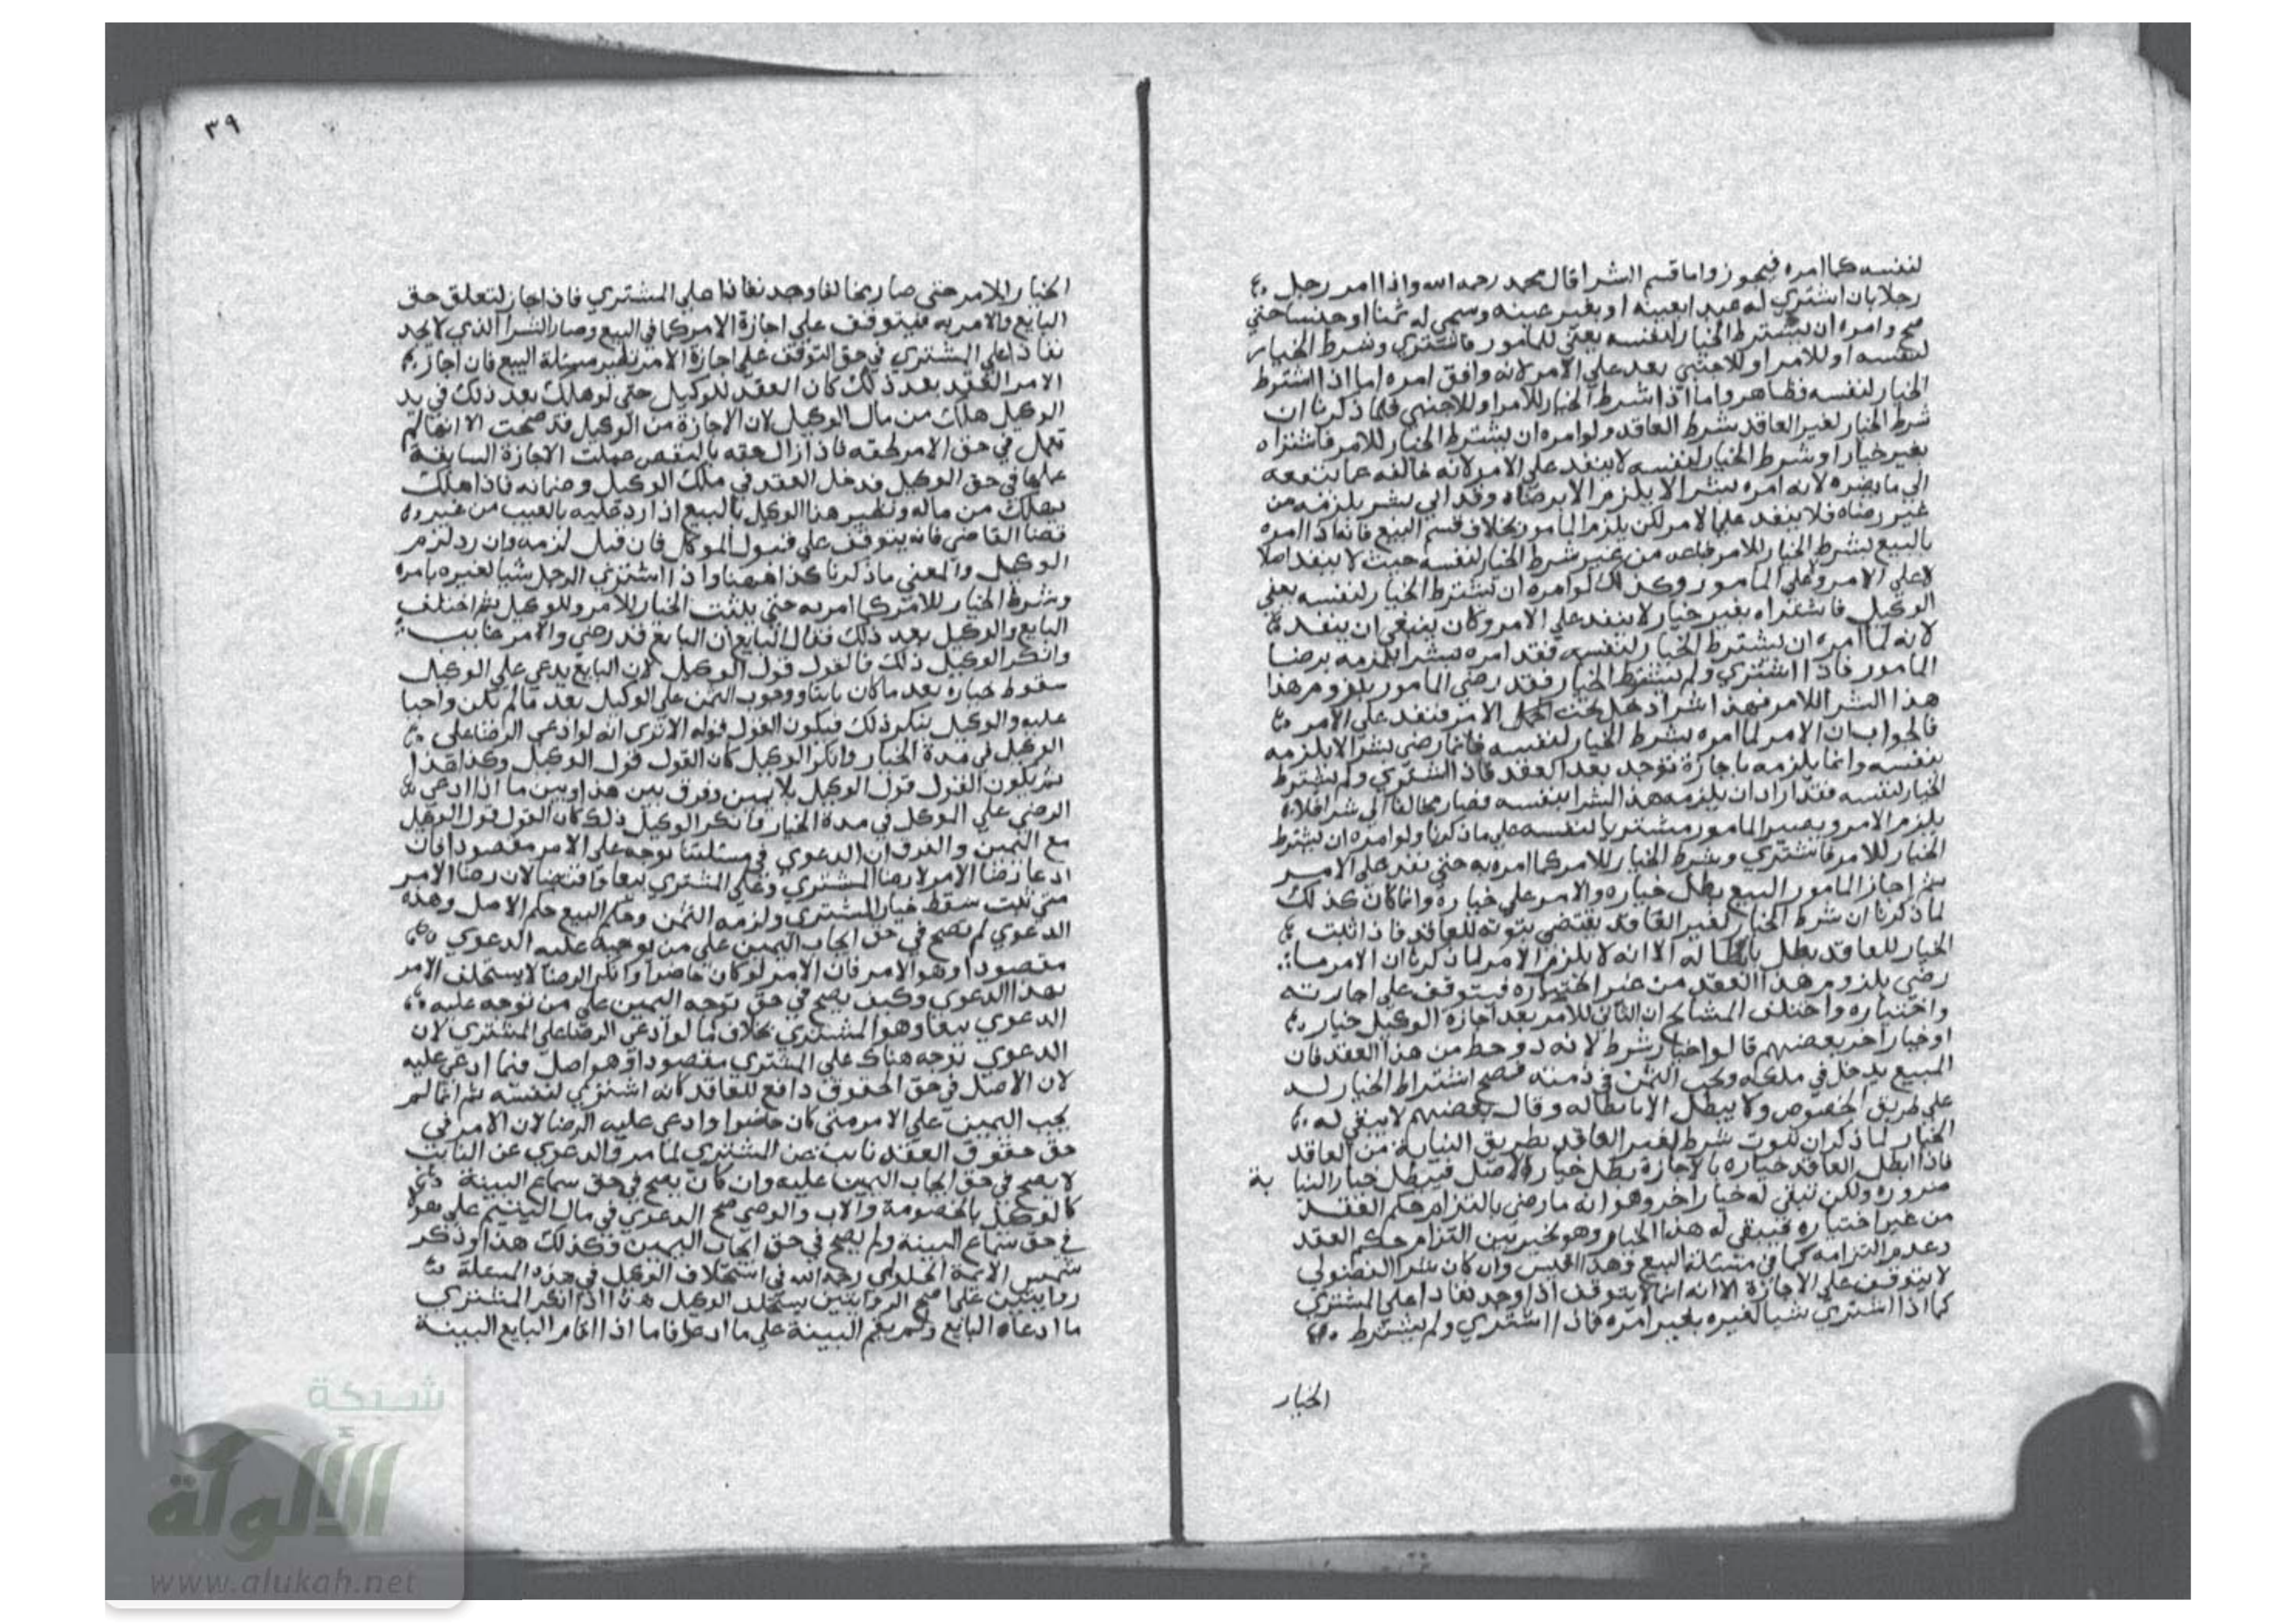 لنفسه كما امره فيجوز واما قسم الشرا قال محمد رحمه الله واذا امر رجل
رجلا بان اشتري له عبدا بعينه او بغير عينه وسمي له ثمنا او جنسا حتي
صح وامره ان يشترط الخيار لنفسه يعني للمامور فاشتري وشرط الخيار
لنفسه او للامر او للاجنبي بعد علي الامر لانه وافق امره اما اذا اشترط
الخيار لنفسه فظاهر واما اذا شرط الخيار للامر او للاجنبي فلما ذكرنا ان
شرط الخيار لغير العاقد شرط العاقد ولو امره ان يشترط الخيار للامر فاشتراه
بغير خيار او شرط الخيار لنفسه لا ينفد علي الامر لانه خالفه عما ينفعه
الي ما يضره لانه امره بشرا لا يلزم الا برضاه وقد اتي بشر يلزمه من
غير رضاه فلا ينفد علي الامر لكن يلزم المامور بخلاف قسم البيع فانه اذا امره
بالبيع بشرط الخيار للامر فباعه من غير شرط الخيار لنفسه حيث لا ينفد اصلا
لا علي الامر ولا علي المامور وكذلك لو امره ان يشترط الخيار لنفسه يعني
الوكيل فاشتراه بغير خيار لا ينفد علي الامر وكان ينبغي ان ينفد
لانه لما امره ان يشترط الخيار لنفسه فقد امره بشرا يلزمه برضا
المامور فاذا اشتري ولم يشترط الخيار فقد رضي المامور بلزوم هذا
هذا الشرا للامر فهذا شرا دخل تحت الامر فنفد علي الامر
فالجواب ان الامر لما امره بشرط الخيار لنفسه فانما رضي بشرا لا يلزمه
بنفسه وانما يلزمه باجازة توجد بعد العقد فاذا اشتري ولم يشترط
الخيار لنفسه فقد اراد ان يلزمه هذا الشرا بنفسه فصار مخالفا الي شر فلا
يلزم الامر ويصير المامور مشتريا لنفسه علي ما ذكرنا ولو امره ان يشترط
الخيار للامر فاشتري وشرط الخيار للامر كما امره به حتي نفد علي الامر
ثم اجاز المامور البيع بطل خياره والامر علي خياره وانما كان كذلك
لما ذكرنا ان شرط الخيار لغير العاقد يقتضي ثبوته للعاقد فاذا ثبت
الخيار للعاقد بطل بابطاله الا انه لا يلزم الامر لما ذكرنا ان الامر ما
رضي بلزوم هذا العقد من غير اختياره فيتوقف علي اجازته
واختياره واختلف المشايخ ان الثابت للامر بعد اجازة الوكيل خيار
او خيار اخر بعضهم قالوا خيار شرط لانه ذو حظ من هذا العقد فان
المبيع يدخل في ملكه ويجب الثمن في ذمته فصح اشتراط الخيار له
علي طريق الخصوص ولا يبطل الا بابطاله وقال بعضهم لا يبقي له
الخيار لما ذكر ان ثبوت شرط لغير العاقد بطريق النيابة من العاقد
فاذا ابطل العاقد خياره بالاجازة بطل خيار الاصل فيبطل خيار النيابة
ضرورة ولكن تبقي له خيار اخر وهو انه ما رضي بالتزام حكم العقد
من غير اختياره فيبقي له هذا الخيار وهو تخير بين التزام حكم العقد
وعدم التزامه كما في مسئلة البيع وهذا اقيس وان كان شرا الفضولي
لا يتوقف علي الاجازة الا انه انما لا يتوقف اذا وجد نفاذا علي المشتري
كما اذا اشتري شيا لغيره بغير امره فاذا اشتري ولم يشترط
الخيار
٣٩
الخيار للامر حتي صار مخالفا وجد نفاذا علي المشتري فاذا جاز لتعلق حق
البايع والامر به فيتوقف علي اجازة الامر كما في البيع وصار الشرا الذي لا يجد
نفاذا علي المشتري في حق التوقف علي اجازة الامر نظير مسئلة البيع فان اجاز
الامر العقد بعد ذلك كان العقد للوكيل حتي لو هلك بعد ذلك في يد
الوكيل هلك من مال الوكيل لان الاجازة من الوكيل قد صحت الا انها لم
تعمل في حق الامر لحقه فاذا زال حقه بالنقض عملت الاجازة السابقة
عملها في حق الوكيل فدخل العقد في ملك الوكيل وضمانه فاذا هلك
يهلك من ماله ونظير هذا الوكيل بالبيع اذا رد عليه بالعيب من غير
قضا القاضي فانه يتوقف علي قبول الموكل فان قبل لزمه وان رد لزم
الوكيل والمعني ما ذكرنا كذا ههنا واذا اشتري الرجل شيا لغيره بامره
وشرط الخيار للامر كما امر به حتي يثبت الخيار للامر وللوكيل ثم اختلف
البايع والوكيل بعد ذلك فقال البايع ان البايع قد رضي والامر غايب
وانكر الوكيل ذلك فالقول قول الوكيل لان البايع يدعي علي الوكيل
سقوط خياره بعد ما كان ثابتا ووجوب الثمن علي الوكيل بعد ما لم يكن واجبا
عليه والوكيل ينكر ذلك فيكون القول قوله الا تري انه لو ادعي الرضا علي
الوكيل في مدة الخيار وانكر الوكيل كان القول قول الوكيل وكذا هذا
ثم يكون القول قول الوكيل بلا يمين وفرق بين هذا وبين ما اذا ادعي
الرضي علي الوكيل في مدة الخيار فانكر الوكيل ذلك كان القول قول الوكيل
مع اليمين والفرق ان الدعوي في مسئلتنا توجه علي الامر مقصودا فان
ادعا رضا الامر لا رضا المشتري وعلي المشتري تبعا واقتضا لان رضا الامر
متي ثبت سقط خيار المشتري ولزمه الثمن وحكم البيع حكم الاصل وهذه
الدعوي لم تصح في حق ايجاب اليمين علي من توجه عليه الدعوي
مقصودا وهو الامر فان الامر لو كان حاضرا وانكر الرضا لا يستحلف الامر
بهذا الدعوي وكيف يصح في حق توجه اليمين علي من توجه عليه
الدعوي تبعا وهو المشتري بخلاف ما لو ادعي الرضا علي المشتري لان
الدعوي توجه هناك علي المشتري مقصودا وهو اصل فيما ادعي عليه
لان الاصل في حق الحقوق دافع للعاقد كانه اشتري لنفسه ثم انما لم
يجب اليمين علي الامر متي كان حاضرا وادعي عليه الرضا لان الامر في
حق حقوق العقد نايب عن المشتري لما مر والدعوي عن النايب
لا يصح في حق ايجاب اليمين عليه وان كان يصح في حق سماع البينة
كالوكيل بالخصومة والاب والوصي صح الدعوي في مال اليتيم علي
في حق سماع البينة ولم يصح في حق ايجاب اليمين فكذلك هذا وذكر
شمس الايمة الحلواي رحمه الله في استحلاف الوكيل في هذه المسئلة
روايتين علي اصح الروايتين يستحلف الوكيل هذا اذا انكر المشتري
ما ادعاه البايع ولم يقم البينة علي ما ادعا فاما اذا اقام البايع البينة
شبكة
الألوكة
www.alukah.net